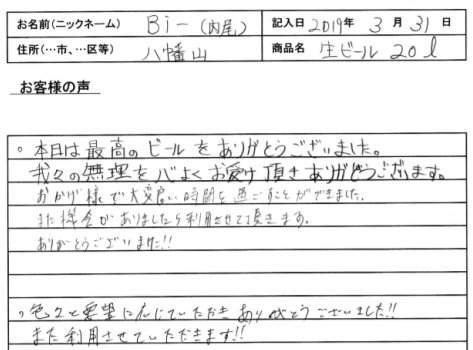 お名前(ニックネーム) Bi-(内尾) 記入日 2019年 3月 31日
住所(…市、…区等) 八幡山 商品名 生ビール 20ℓ
お客様の声
。本日は最高のビールをありがとうございました。
我々の無理を心よくお受け頂きありがとうございます。
おかげ様で大変良い時間を過ごすことができました。
また機会がありましたら利用させて頂きます。
ありがとうございました!!
。色々と要望に応じていただきありがとうございました!!
また利用させていただきます!!